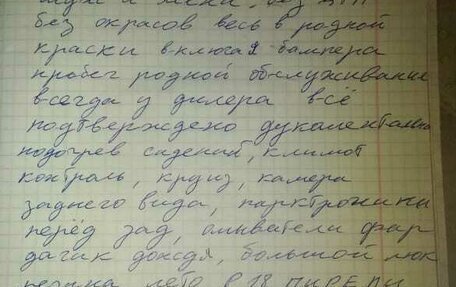 без окрасов весь в родной
краски включая бампера
пробег родной обслуживание
всегда у дилера всё
подтверждено дукаментально
подогрев сидений, климот
контроль, круиз, камера
заднего вида, парктроники
перёд зад, омиватели фар
датчик дождя, большой люк
резина лето R 18 ПИРЕЛИ